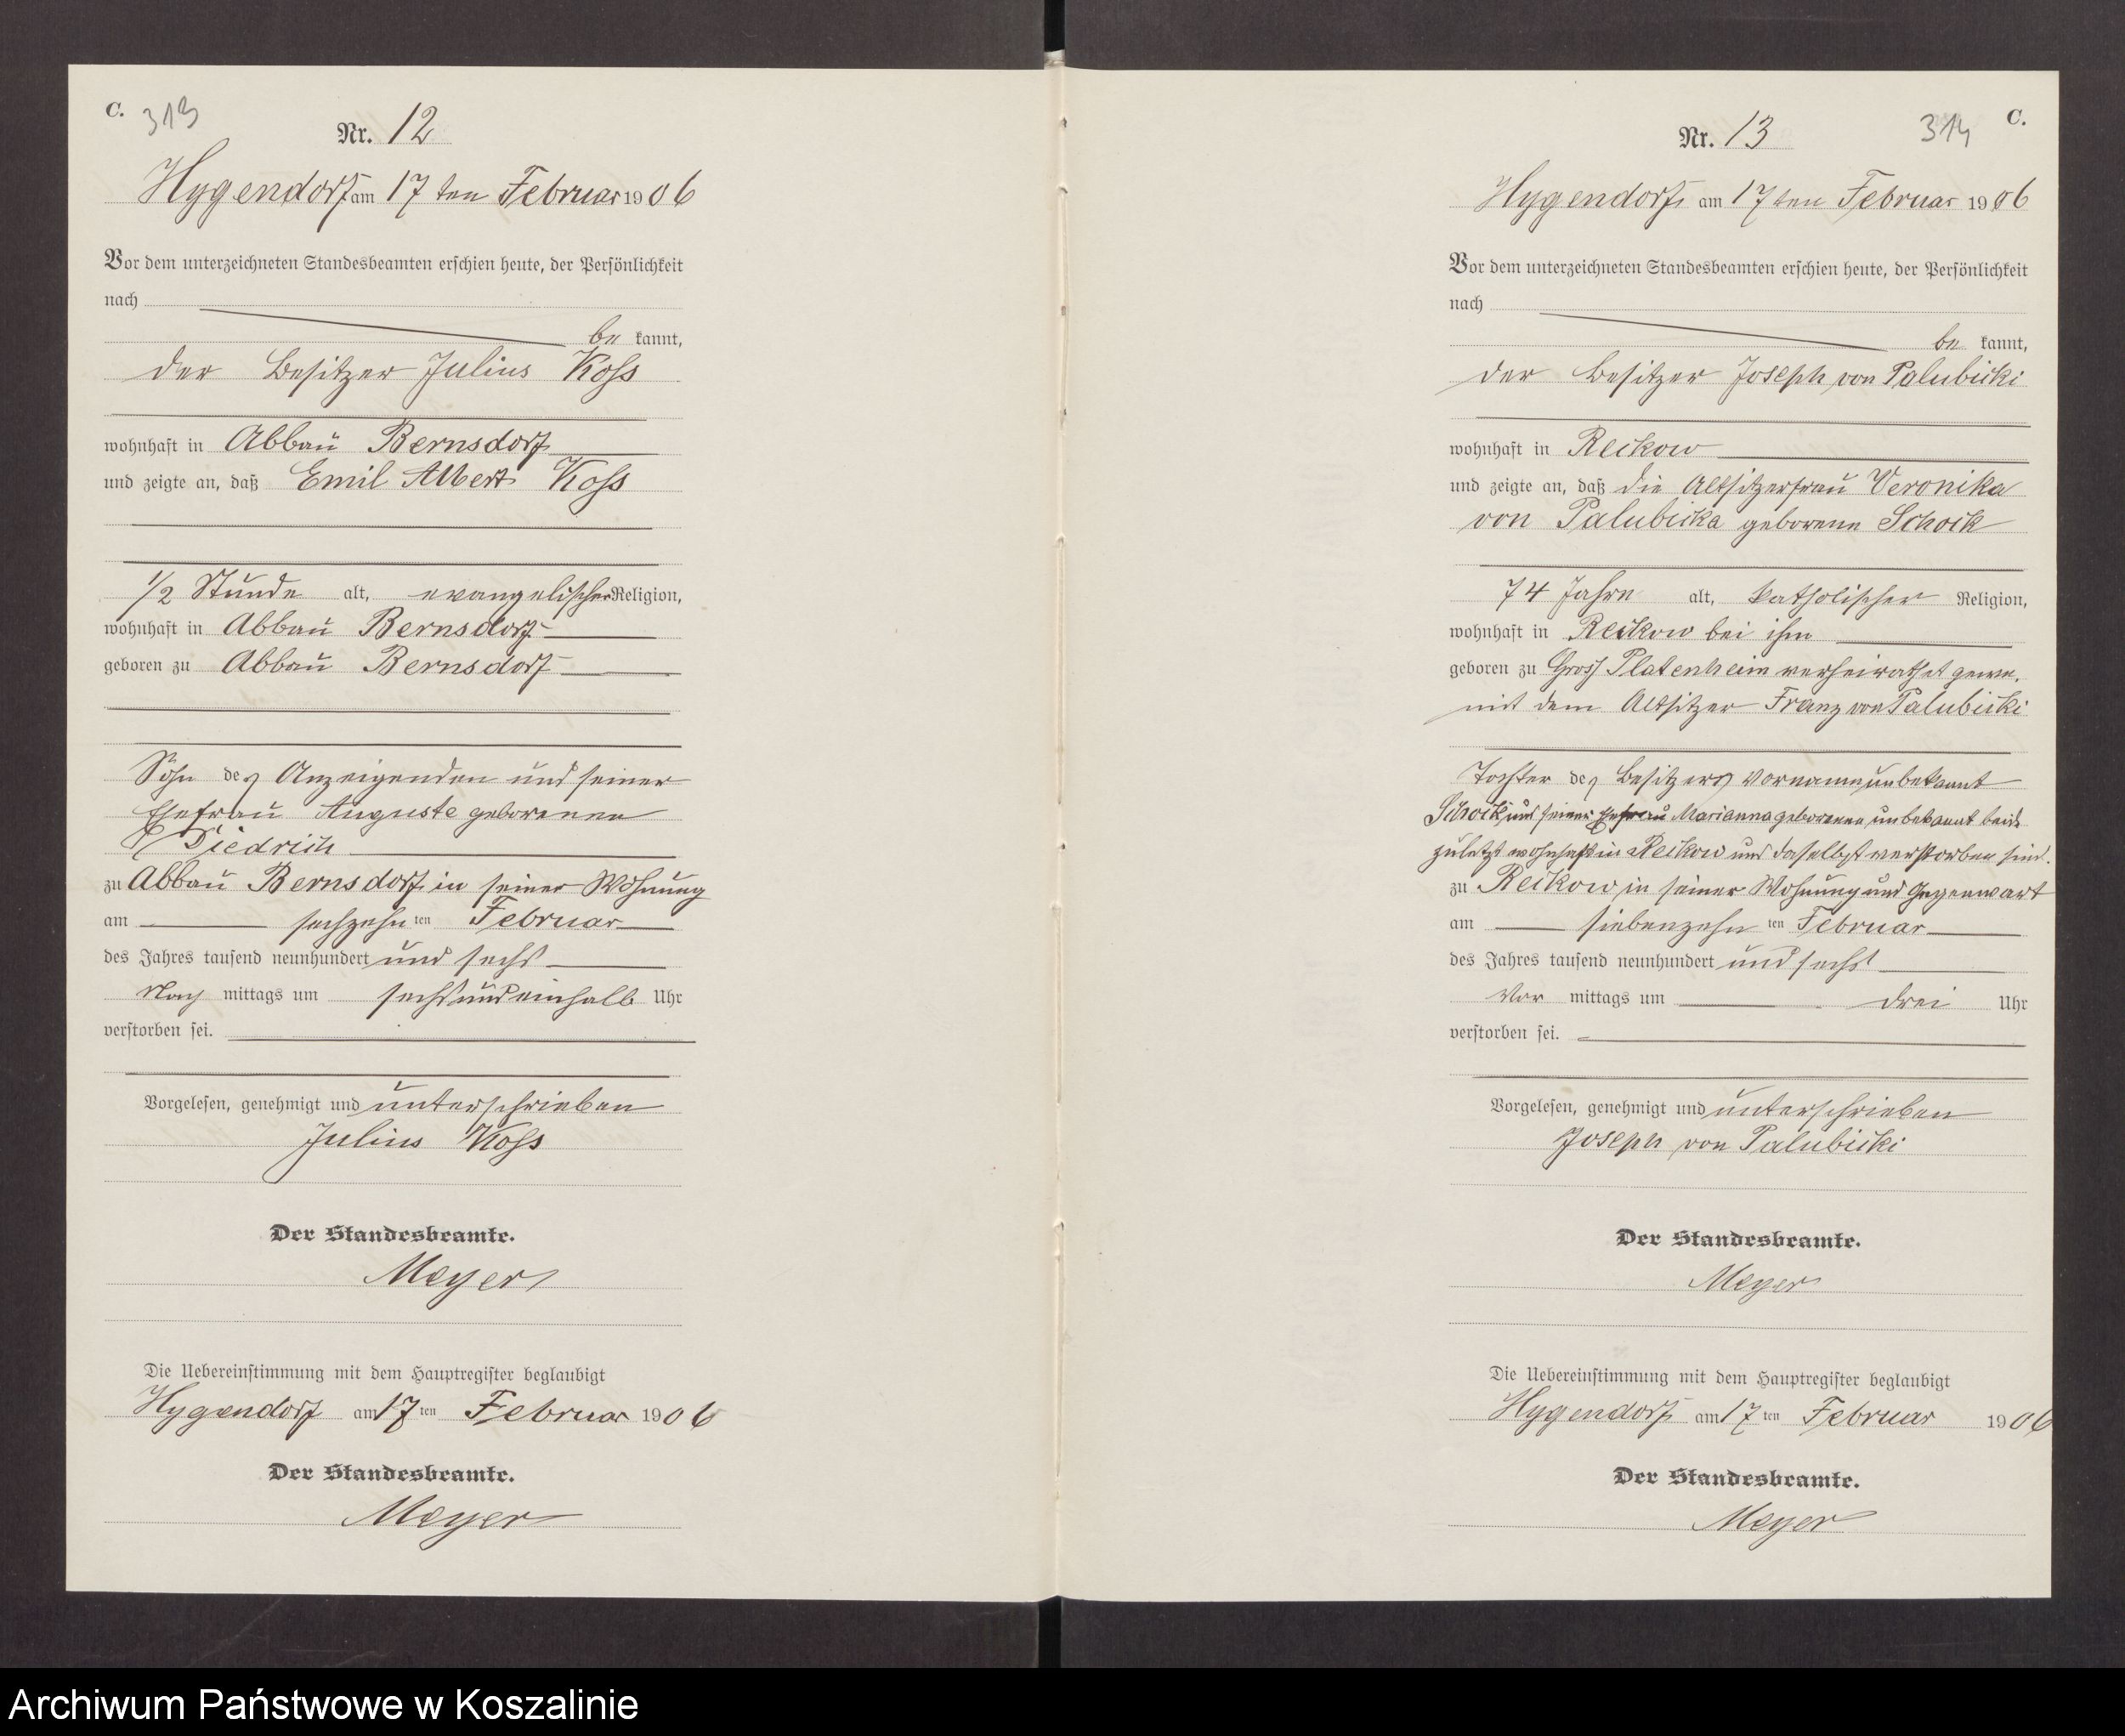 C. 313
Nr. 12
Hygendorf am 17 ten Februar 1906
Vor dem unterzeichneten Standesbeamten erschien heute, der Persönlichkeit
nach
be kannt,
der Besitzer Julius Koss
wohnhaft in Abbau Bernsdorf
und zeigte an, daß Emil Albert Koss
1/2 Stunde alt, evangelischer Religion,
wohnhaft in Abbau Bernsdorf
geboren zu Abbau Bernsdorf
Sohn des Anzeigenden und seiner
Ehefrau Auguste geborenen
Diedrich
zu Abbau Bernsdorf in seiner Wohnung
am sechzehn ten Februar
des Jahres tausend neunhundert und sechs
Nach mittags um sechs und einhalb Uhr
verstorben sei.
Vorgelesen, genehmigt und unterschrieben
Julius Koss
Der Standesbeamte.
Meyer
Die Uebereinstimmung mit dem Hauptregister beglaubigt
Hygendorf am 17 ten Februar 1906
Der Standesbeamte.
Meyer
314 C.
Nr. 13
Hygendorf am 17 ten Februar 1906
Vor dem unterzeichneten Standesbeamten erschien heute, der Persönlichkeit
nach
be kannt,
der Besitzer Joseph von Palubicki
wohnhaft in Reckow
und zeigte an, daß die Altsitzerfrau Veronika
von Palubicka geborene Schock
74 Jahre alt, katholischer Religion,
wohnhaft in Reckow bei ihm
geboren zu Gross Platenheim verheirathet gewe.
mit dem Altsitzer Franz von Palubicki
Tochter des Besitzers Vorname unbekannt
Schock und seiner Ehefrau Marianna geborenen unbekannt beide
zuletzt wohnhaft in Reckow und daselbst verstorben sind.
zu Reckow in seiner Wohnung und Gegenwart
am siebenzehn ten Februar
des Jahres tausend neunhundert und sechs
Vor mittags um drei Uhr
verstorben sei.
Vorgelesen, genehmigt und unterschrieben
Joseph von Palubicki
Der Standesbeamte.
Meyer
Die Uebereinstimmung mit dem Hauptregister beglaubigt
Hygendorf am 17 ten Februar 1906
Der Standesbeamte.
Meyer
Archiwum Państwowe w Koszalinie